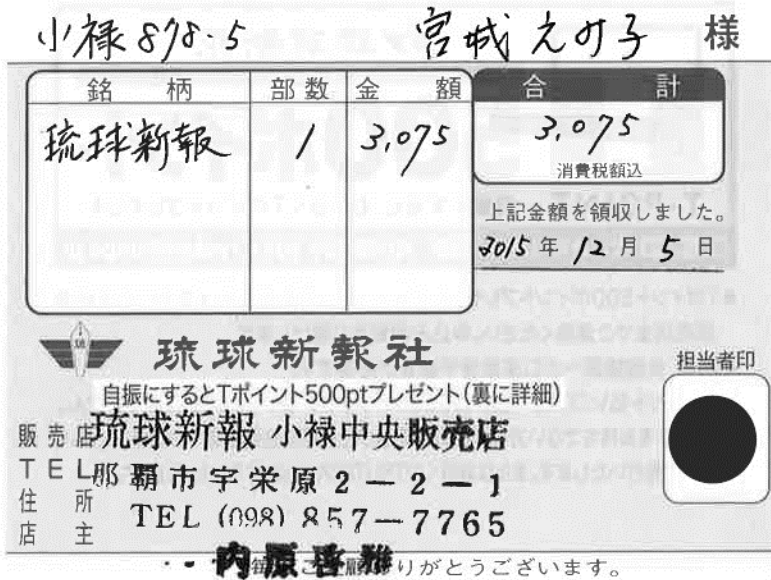 小禄 878-5 宮城 えみ子 様
銘柄 部数 金額 合計
琉球新報 1 3,075 3,075
消費税額込
上記金額を領収しました。
2015 年 12 月 5 日
琉球新報社
担当者印
自振にするとTポイント500ptプレゼント(裏に詳細)
販売店 琉球新報 小禄中央販売店
TEL 那覇市宇栄原2-2-1
住所 TEL (098) 857-7765
店主
内原
りがとうございます。